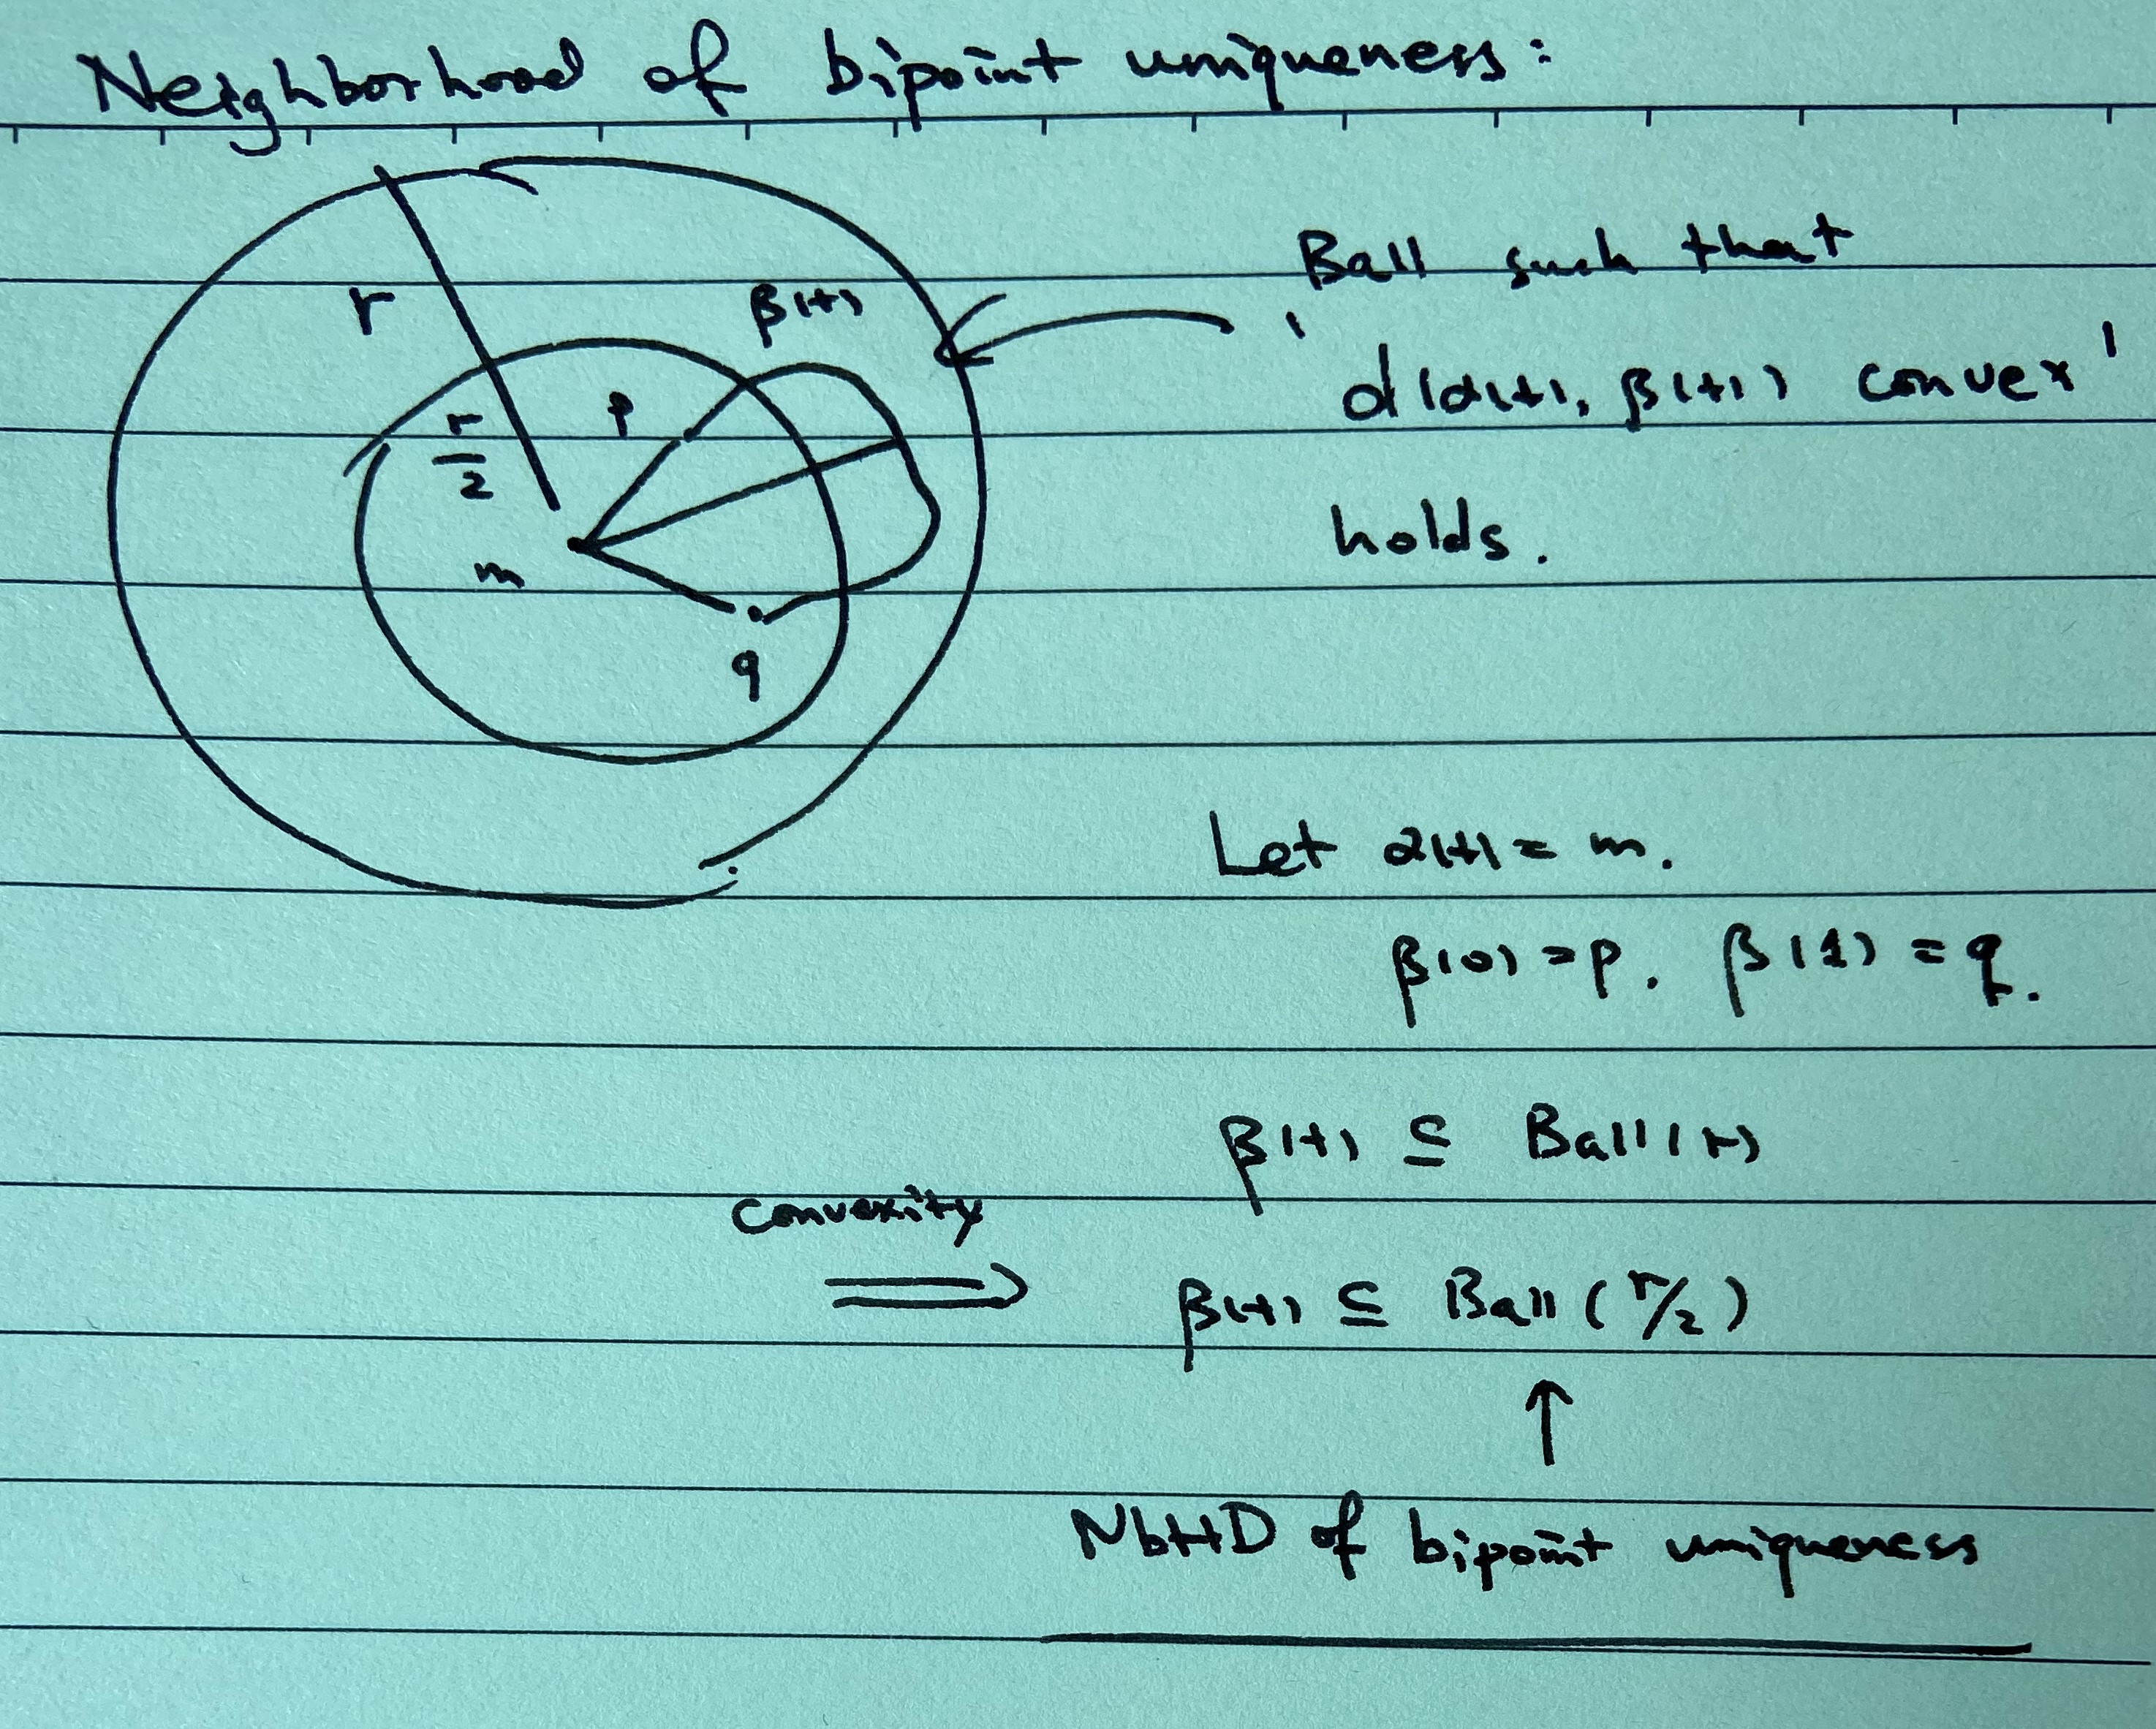 Neighborhood of bipoint uniqueness:
r
β(t)
r/2
p
m
q
Ball such that
'd(α(t), β(t)) convex'
holds.
Let α(t) = m.
β(0) = p. β(1) = q.
β(t) ⊆ Ball(r)
convexity
⇒ β(t) ⊆ Ball(r/2)
↑
NbHD of bipoint uniqueness